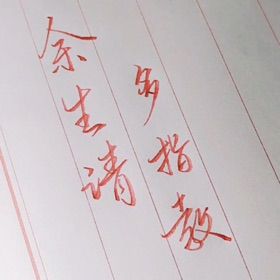 余生请
多指教